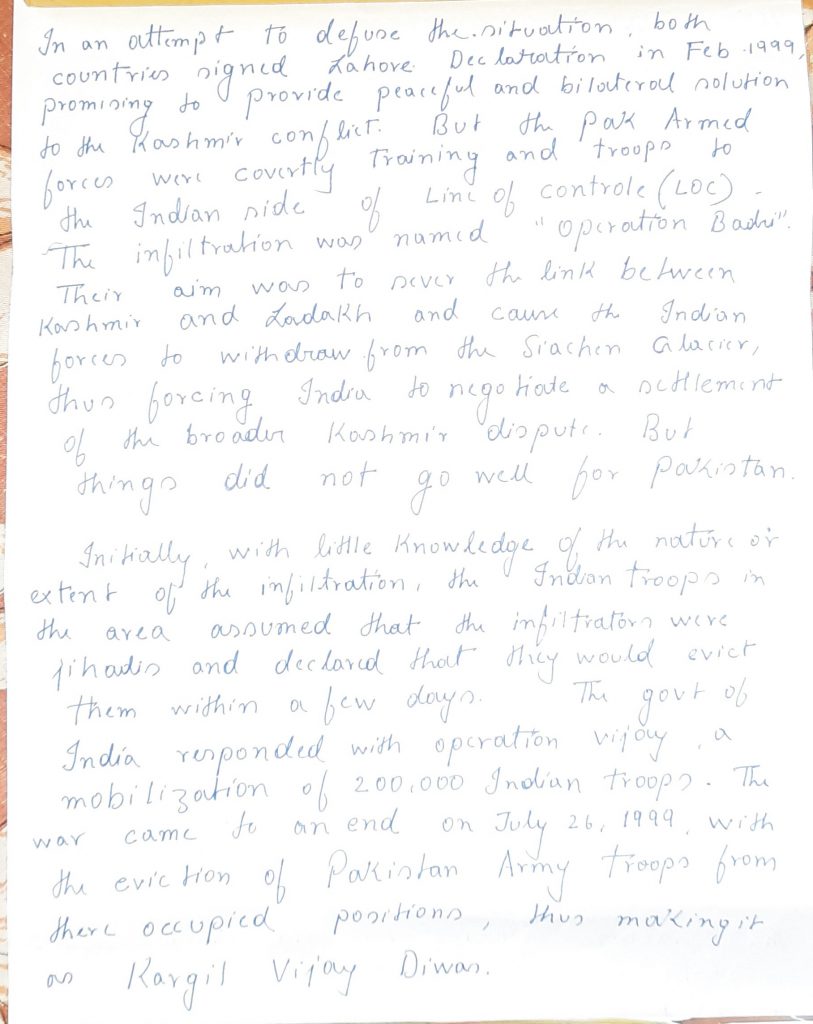 In an attempt to defuse the situation, both
countries signed Lahore Declaration in Feb 1999,
promising to provide peaceful and bilateral solution
to the Kashmir conflict. But the Pak Armed
forces were covertly Training and troops to
the Indian side of Line of controle (LOC).
The infiltration was named "Operation Badri".
Their aim was to sever the link between
Kashmir and Ladakh and cause the Indian
forces to withdraw from the Siachen Glacier,
thus forcing India to negotiate a settlement
of the broader Kashmir dispute. But
things did not go well for Pakistan.
Initially, with little Knowledge of the nature or
extent of the infiltration, the Indian Troops in
the area assumed that the infiltrators were
jihadis and declared that they would evict
them within a few days. The govt of
India responded with operation vijay, a
mobilization of 200,000 Indian troops. The
war came to an end on July 26, 1999, with
the eviction of Pakistan Army Troops from
there occupied positions, thus making it
as Kargil Vijay Diwas.